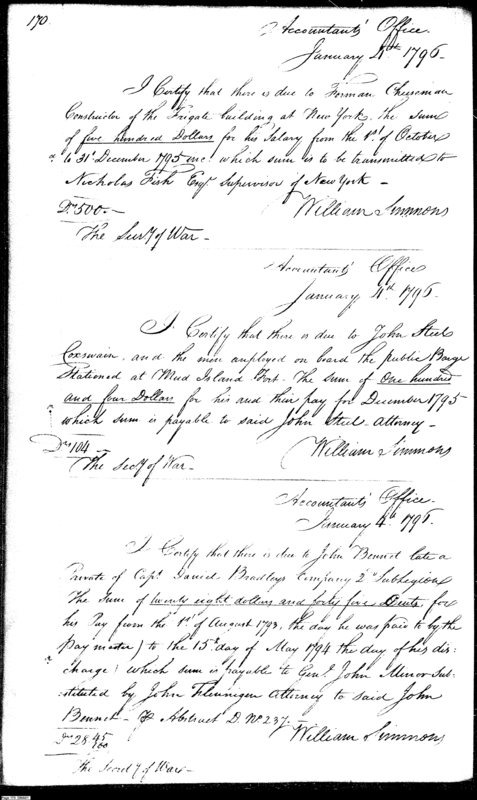 170
Accountants' Office.
January 4th 1796.
I Certify that there is due to Forman Cheeseman
Constructor of the Frigate building at New York, the sum
of five hundred Dollars for his Salary from the 1st of October
to 31st December 1795 inc. which sum is to be transmitted to
Nicholas Fish Esqr. Supervisor of New York -
Drs 500.-
William Simmons
The Secry of War -
Accountants' Office
January 4th 1796.
I Certify that there is due to John Steel
Coxswain, and the men employed on board the public Barge
Stationed at Mud Island Fort. The Sum of One hundred
and four Dollars for his and their pay for December 1795
which sum is payable to said John Steel Attorney -
Drs 104 -
William Simmons
The Secy of War -
Accountants' Office.
January 4th 1796.
I Certify that there is due to John Bennet late a
Private of Capt. Daniel Bradleys Company 2nd SubLegion
The Sum of twenty eight dollars and forty five Cents, for
his Pay from the 1st of August 1793, the day he was paid to by the
Paymaster) to the 15th day of May 1794 the day of his dis-
charge: which sum is payable to Genl. John Minor Sub-
stituted by John Flennigen Attorney to said John
Bennet - Abstract D. No 237.-
Drs 28 45/100
William Simmons
The Secrety of War -